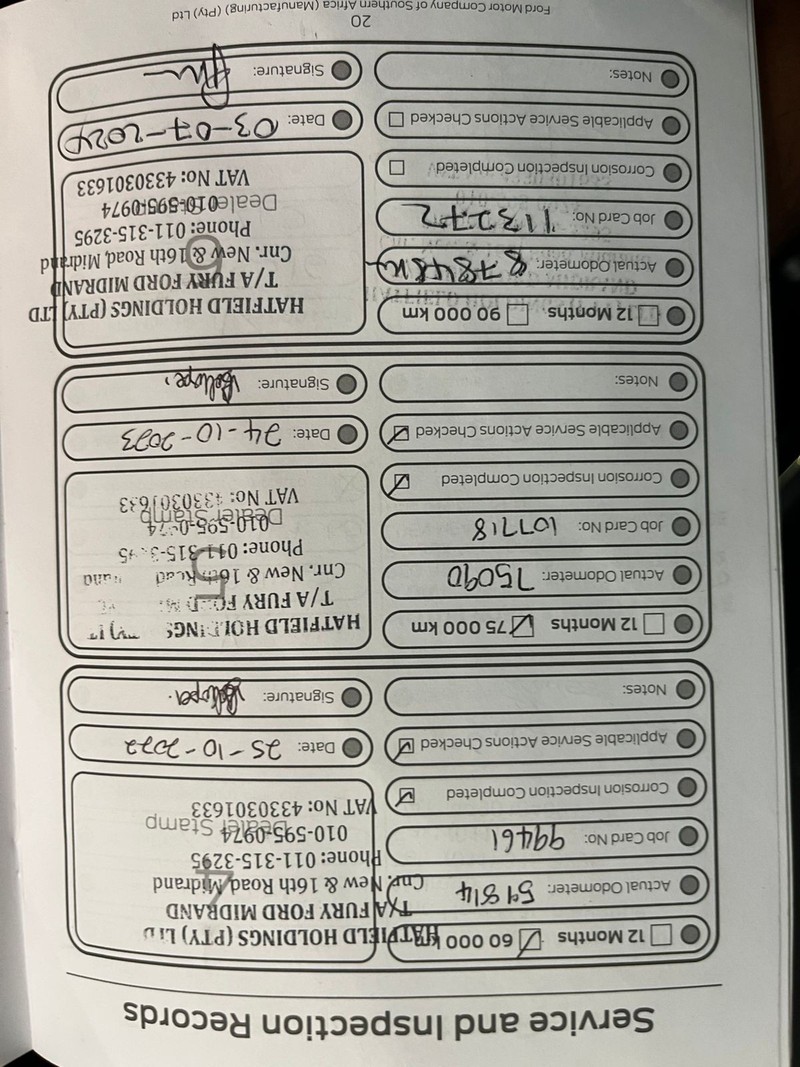 Service and Inspection Records
12 Months ☑ 60 000 km
Actual Odometer: 59814
Job Card No: 99461
Corrosion Inspection Completed ☑
Applicable Service Actions Checked ☑
Notes:
4
Dealer Stamp
HATFIELD HOLDINGS (PTY) LTD
T/A FURY FORD MIDRAND
Cnr. New & 16th Road, Midrand
Phone: 011-315-3295
010-595-0974
VAT No: 4330301633
Date: 25-10-2022
Signature:
12 Months ☑ 75 000 km
Actual Odometer: 75090
Job Card No: 107718
Corrosion Inspection Completed ☑
Applicable Service Actions Checked ☑
Notes:
5
Dealer Stamp
HATFIELD HOLDINGS
T/A FURY FORD
Cnr. New & 16th Road
Phone: 011-315-
010-595-0974
VAT No: 4330301633
Date: 24-10-2023
Signature:
12 Months 90 000 km
Actual Odometer: 87848km
Job Card No: 113272
Corrosion Inspection Completed
Applicable Service Actions Checked
Notes:
6
Dealer Stamp
HATFIELD HOLDINGS (PTY) LTD
T/A FURY FORD MIDRAND
Cnr. New & 16th Road, Midrand
Phone: 011-315-3295
010-595-0974
VAT No: 4330301633
Date: 03-07-2024
Signature:
20
Ford Motor Company of Southern Africa (Manufacturing) (Pty) Ltd